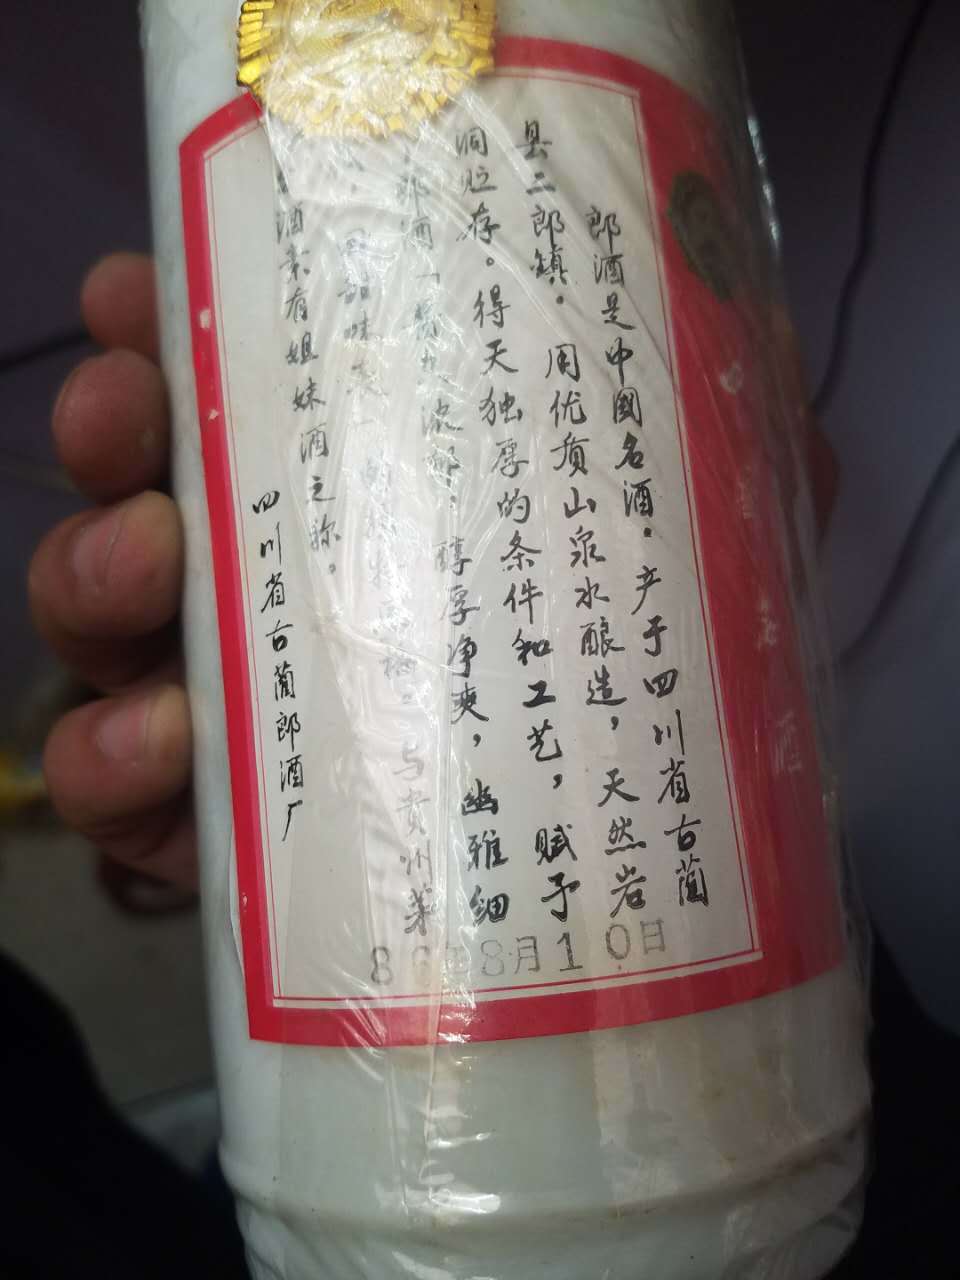 郎酒是中國名酒．产于四川省古蔺
县二郎镇．用优质山泉水酿造，天然岩
洞贮存。得天独厚的条件和工艺，赋予
郎酒「酱 浓郁：醇厚净爽，幽雅细
甜味 与贵州茅
酒素有姐妹酒之称。
四川省古蔺郎酒厂
8 年8月10日
酒